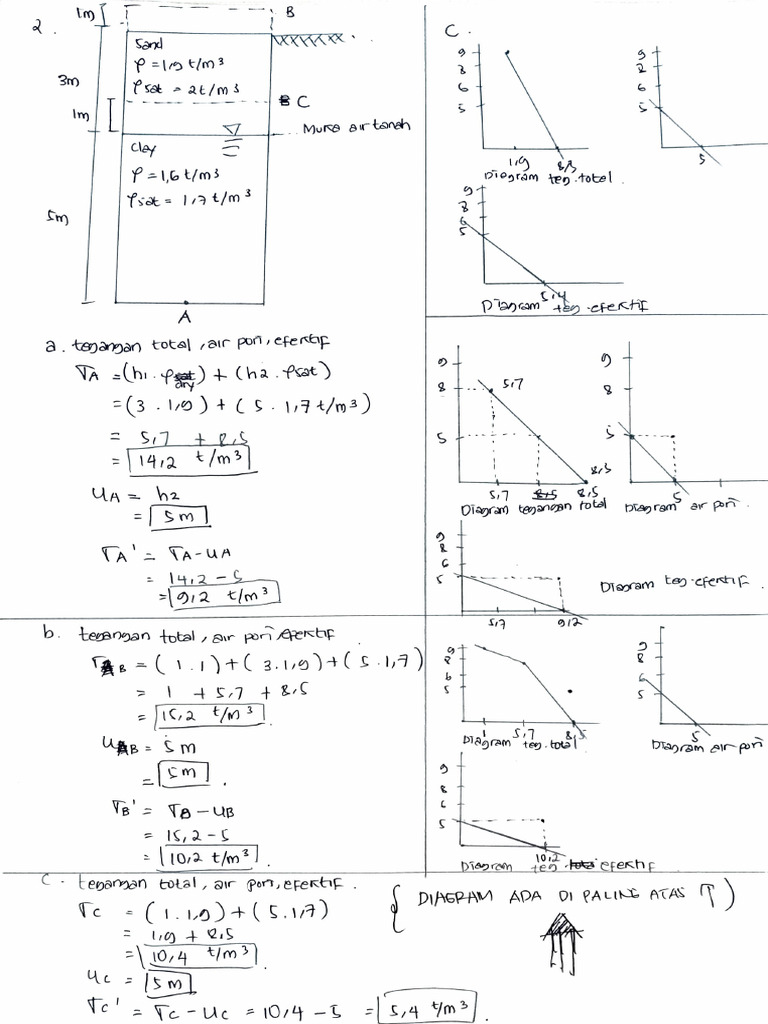 2.
1m
B
Sand
ρ = 1,9 t/m³
ρsat = 2t/m³
3m
1m
C
Muka air tanah
Clay
ρ = 1,6 t/m³
ρsat = 1,7 t/m³
5m
A
C.
9
8
6
5
1,9
8,5
Diagram teg.total
9
8
6
5
5
9
8
6
5
5,4
Diagram teg.efektif
a. tegangan total, air pori, efektif
σA = (h1 . ρdry) + (h2 . ρsat)
= (3 . 1,9) + (5 . 1,7 t/m³)
= 5,7 + 8,5
= 14,2 t/m³
uA = h2
= 5m
σA' = σA - uA
= 14,2 - 5
= 9,2 t/m³
9
8
5
5,7
5,7
8,5
8,5
Diagram tegangan total
9
8
5
5
Diagram air pori.
9
8
6
5
5,7
9,2
Diagram teg.efektif.
b. tegangan total, air pori, efektif
σB = (1.1) + (3.1,9) + (5.1,7)
= 1 + 5,7 + 8,5
= 15,2 t/m³
uB = 5m
= 5m.
σB' = σB - uB
= 15,2 - 5
= 10,2 t/m³.
9
8
6
5
1
5,7
8,5
Diagram teg.total
9
8
6
5
5
Diagram air pori
9
8
6
5
10,2
Diagram teg efektif
C. tegangan total, air pori, efektif.
(DIAGRAM ADA DI PALING ATAS ↑)
σC = (1.1,9) + (5.1,7)
= 1,9 + 8,5
= 10,4 t/m³.
uC = 5m
σC' = σC - uC = 10,4 - 5 = 5,4 t/m³.